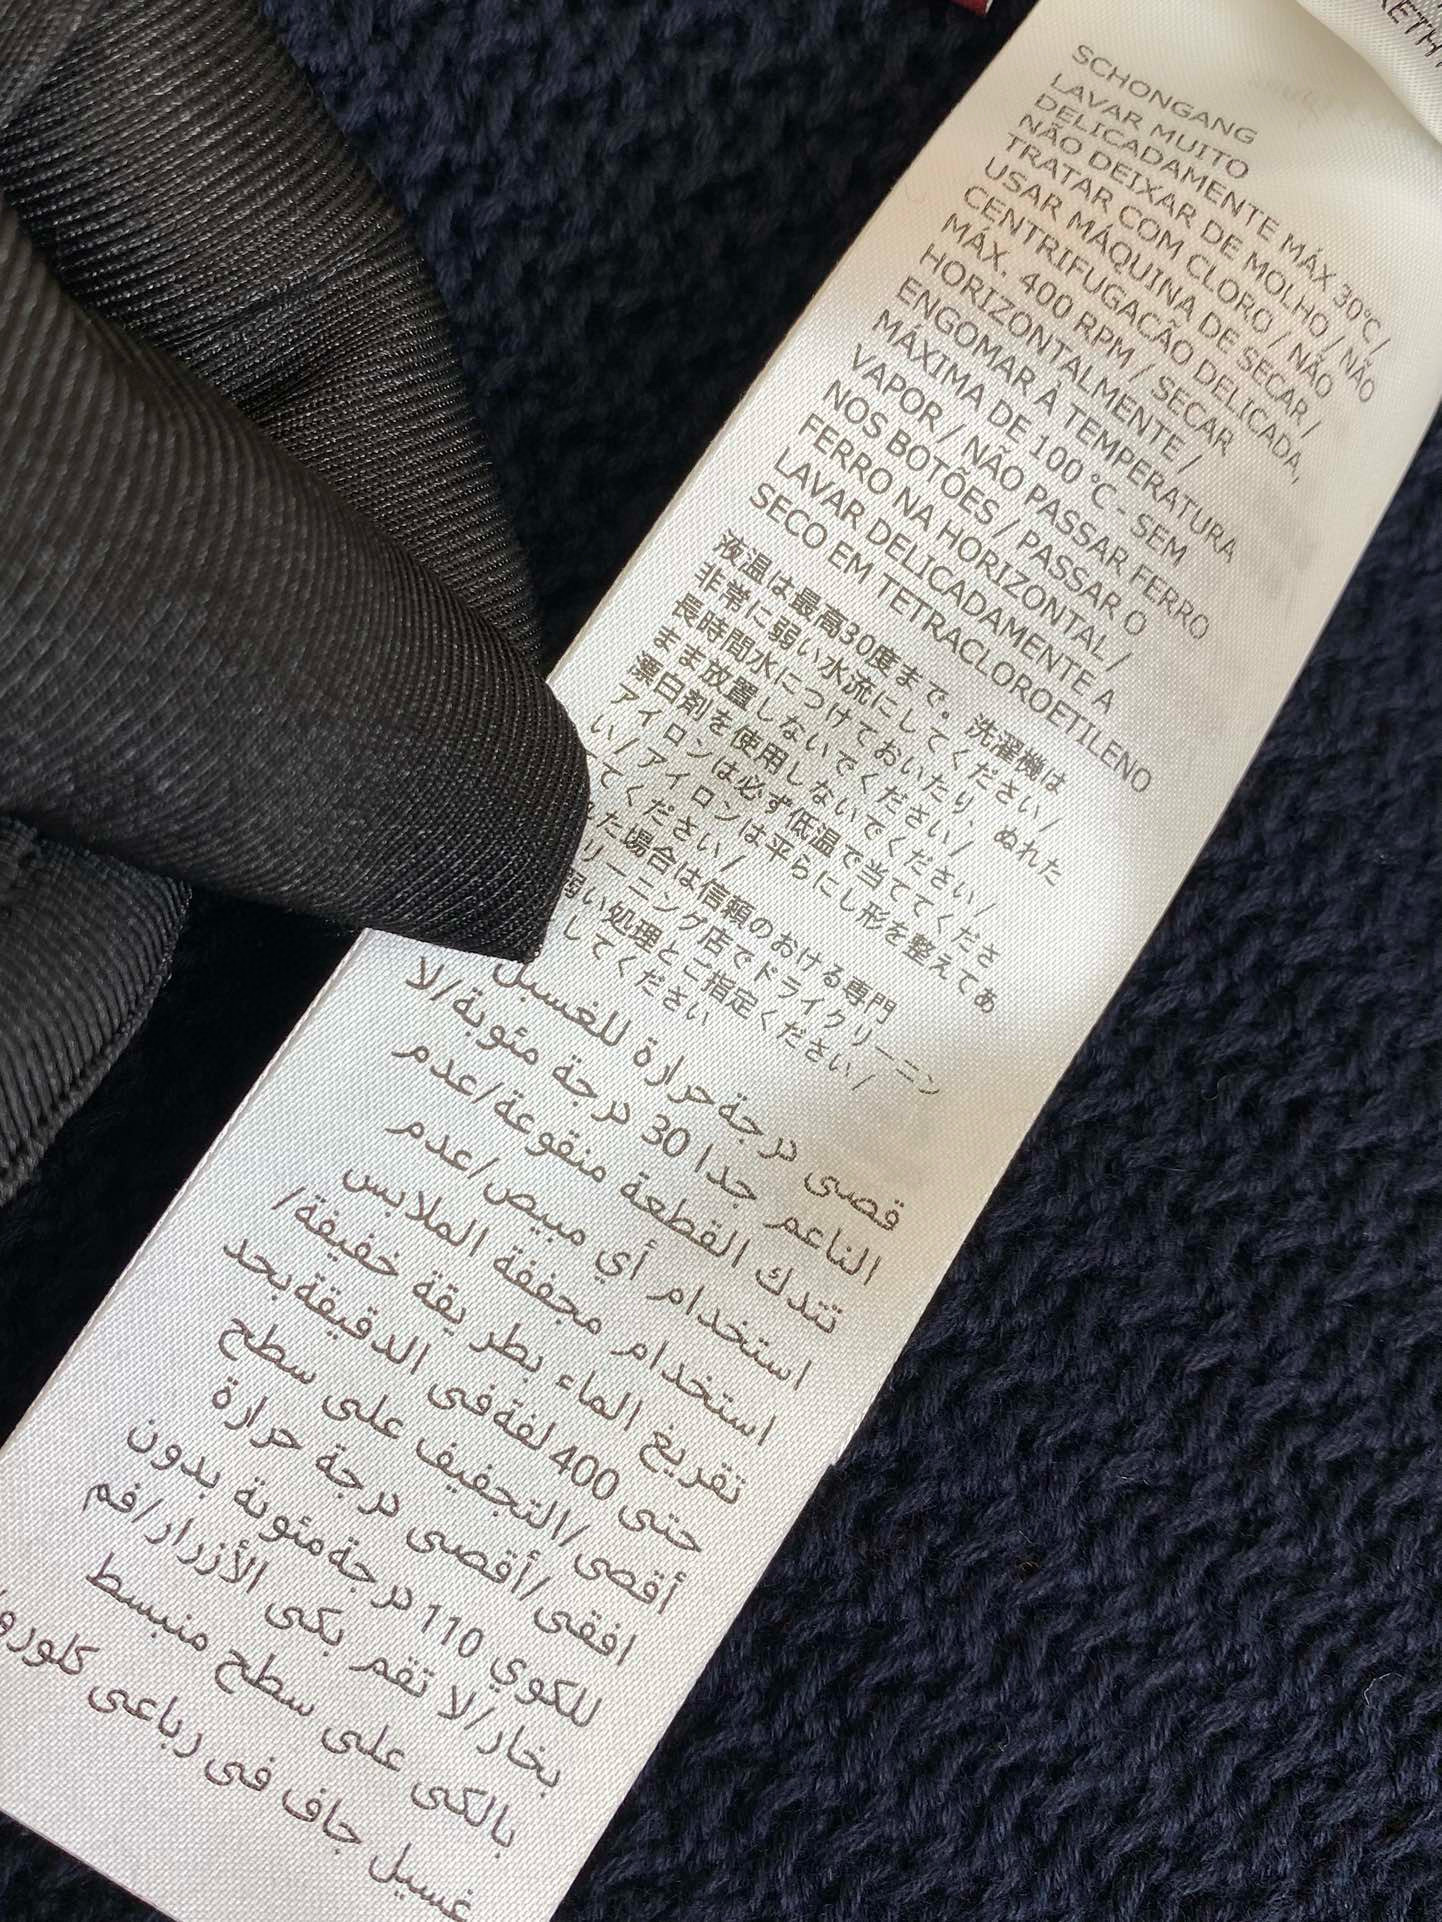 SCHONGANG
LAVAR MUITO
DELICADAMENTE MÁX 30°C /
NÃO DEIXAR DE MOLHO / NÃO
TRATAR COM CLORO / NÃO
USAR MÁQUINA DE SECAR /
CENTRIFUGACÃO DELICADA,
MÁX. 400 RPM / SECAR
HORIZONTALMENTE /
ENGOMAR À TEMPERATURA
MÁXIMA DE 100 °C - SEM
VAPOR / NÃO PASSAR FERRO
NOS BOTÕES / PASSAR O
FERRO NA HORIZONTAL /
LAVAR DELICADAMENTE A
SECO EM TETRACLOROETILENO
液温は最高30度まで。洗濯機は
非常に弱い水流にしてください /
長時間水につけておいたり、ぬれた
まま放置しないでください /
漂白剤を使用しないでください /
アイロンは必ず低温で当ててくださ
い / アイロンは平らにし形を整えてあ
てください /
た場合は信頼のおける専門
リーニング店でドライクリーニン
弱い処理とご指定ください /
してください
قصى درجة حرارة للغسيل
الناعم جدا 30 درجة مئوية/لا
تتدك القطعة منقوعة/عدم
استخدام أي مبيض/عدم
استخدام مجففة الملابس
تفريغ الماء بطريقة خفيفة/
حتى 400 لفة في الدقيقة بحد
أقصى/التجفيف على سطح
افقى/أقصى درجة حرارة
للكوي 110 درجة مئوية بدون
بخار/لا تقم بكى الأزرار/قم
بالكى على سطح منبسط
غسيل جاف في رباعى كلورو